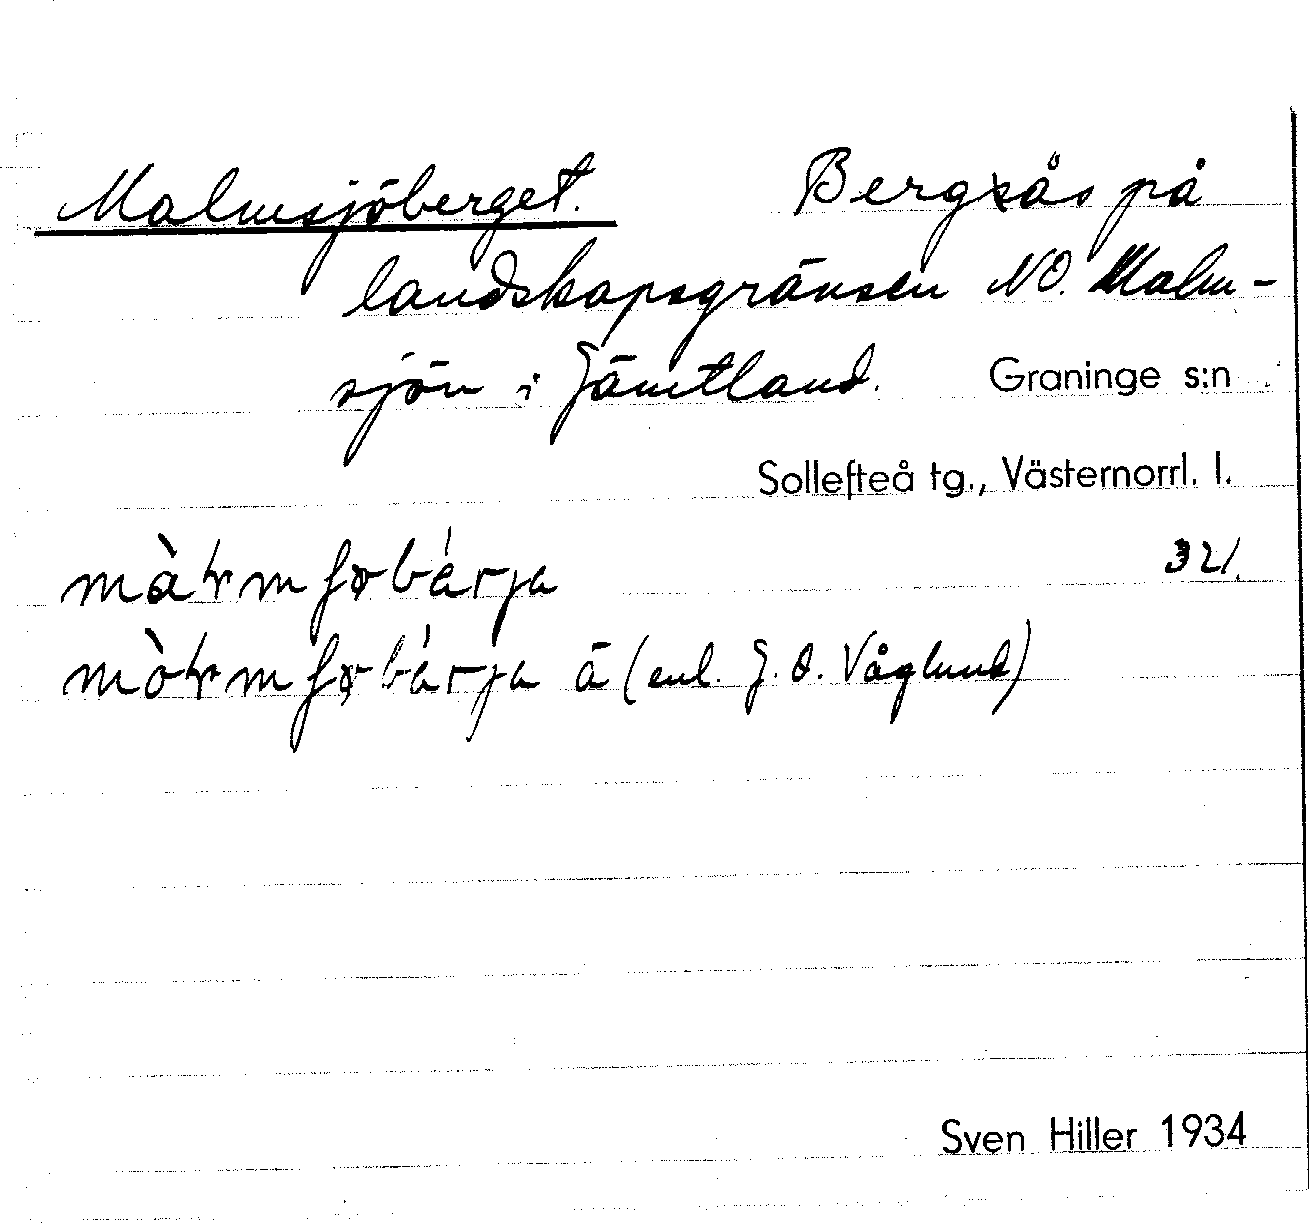 Malmsjöberget. Bergsås på
landskapsgränsen NO. Malm-
sjön i Jämtland. Graninge s:n
Sollefteå tg., Västernorrl. l.
321.
ä (enl. J. O. Våglund)
Sven Hiller 1934